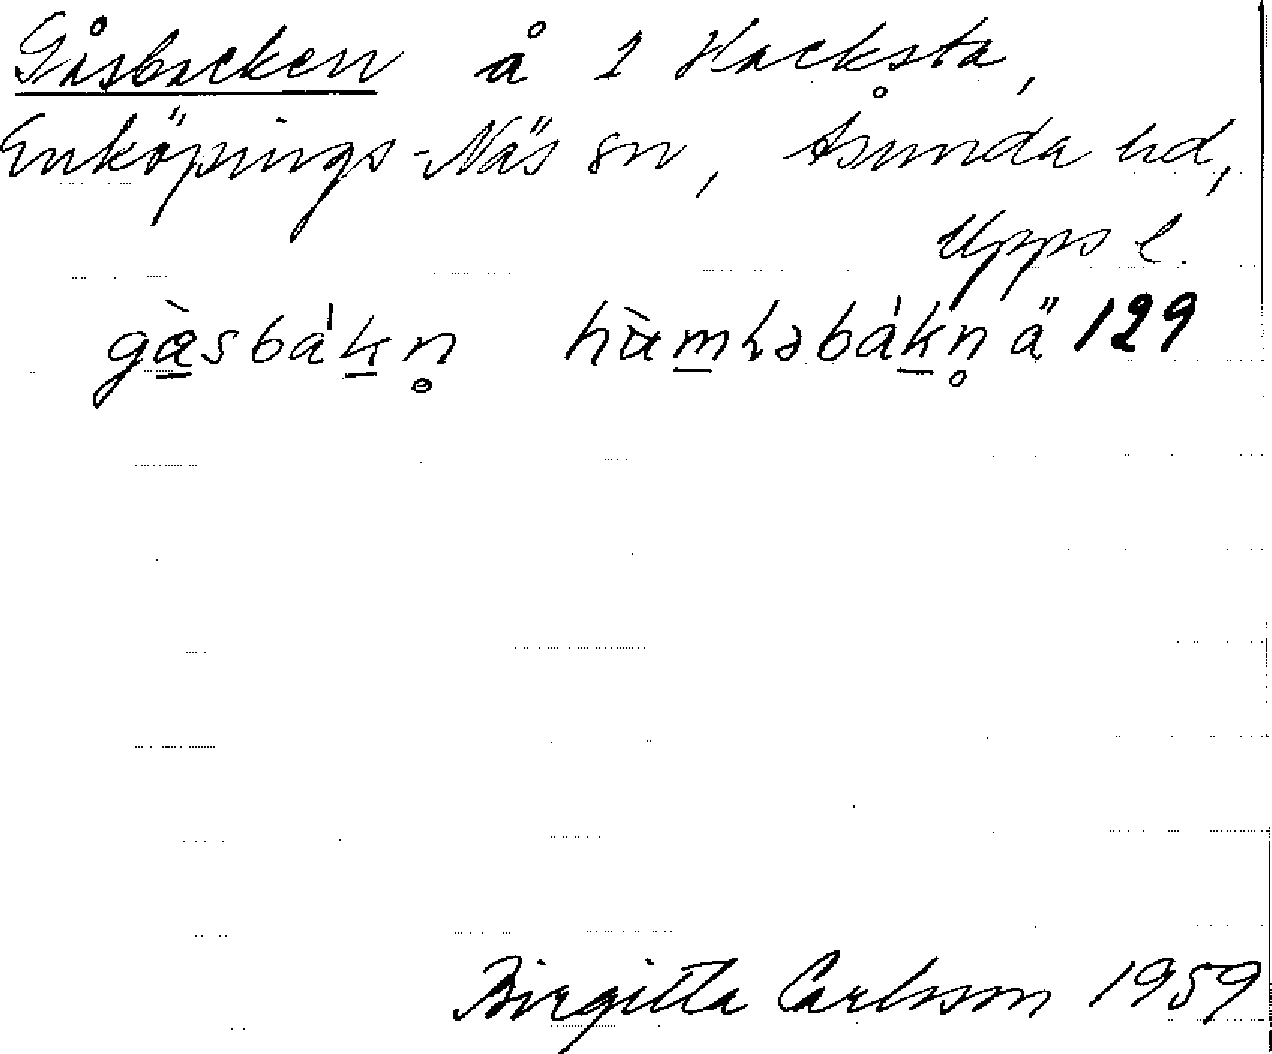 Gåsbacken å 1 Hacksta,
Enköpings-Näs sn, Åsunda hd,
Upps l.
gàsbákn̥ hùmləbákn̥ ä 129
Birgitta Carlsson 1959